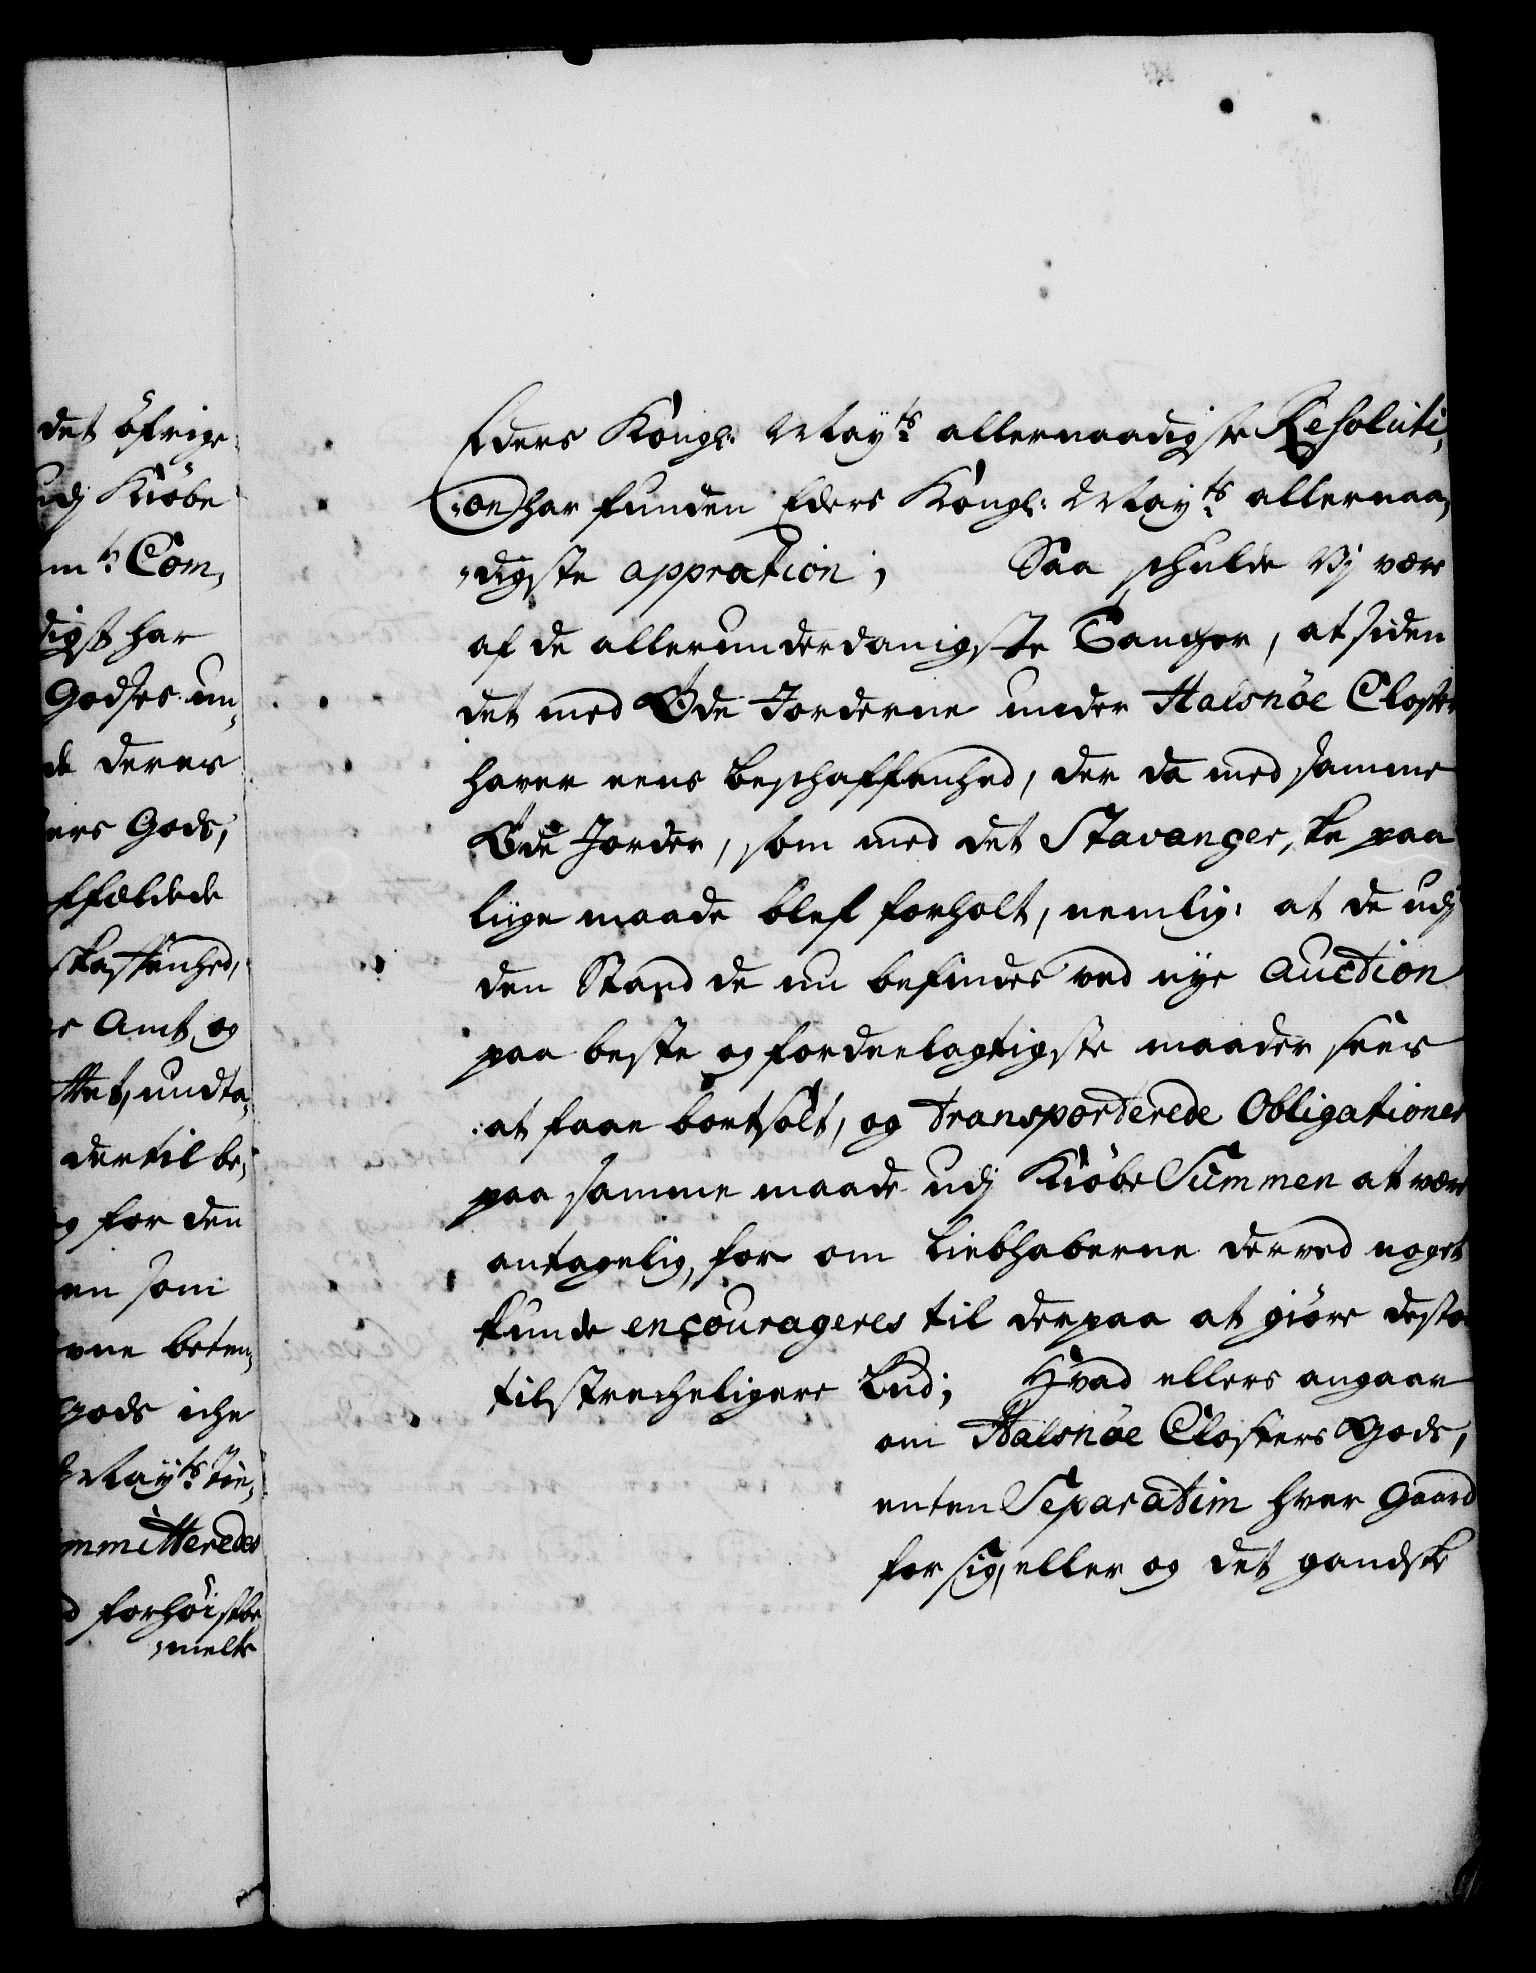 det öfrige
udj Kiöbe
mts Com,
digst har
Godses un,
de deres
ers Gods,
ffældede
skaffenhed,
r Amt og
ttet, undta,
dertil be,
g for den
en som
vne beten,
gods iche
Mayts Tie,
mmitterede
d forhöistbe
,melte
Eders Kongl: Mayts allernaadigste Resoluti,
,on har funden Eders Kongl: Mayts allernaa,
,digste appration; Saa schulde Vj være
af de allerunderdanigste Tancher, at siden
det med Øde Jorderne under Halsnöe Closter
haver eens beschaffenhed, der da med samme
Øde Jorder, som med det Stavanger,ske paa
liige maade blef forholt, nemlig: at de udj
den Stand de nu befindes ved nye Auction
paa beste og fordeelagtigste maader sees
at faae bortsolt, og transporterede Obligationer
paa samme maade udj Kiöbe Summen at være
antagelig, for om Liebhaberne derved noget
kunde encourageres til derpaa at giöre desto
tilstrecheligere Bud; Hvad ellers angaar
om Halsnöe Closters Gods,
enten Separatim hver Gaard
for sig, eller og det gandske